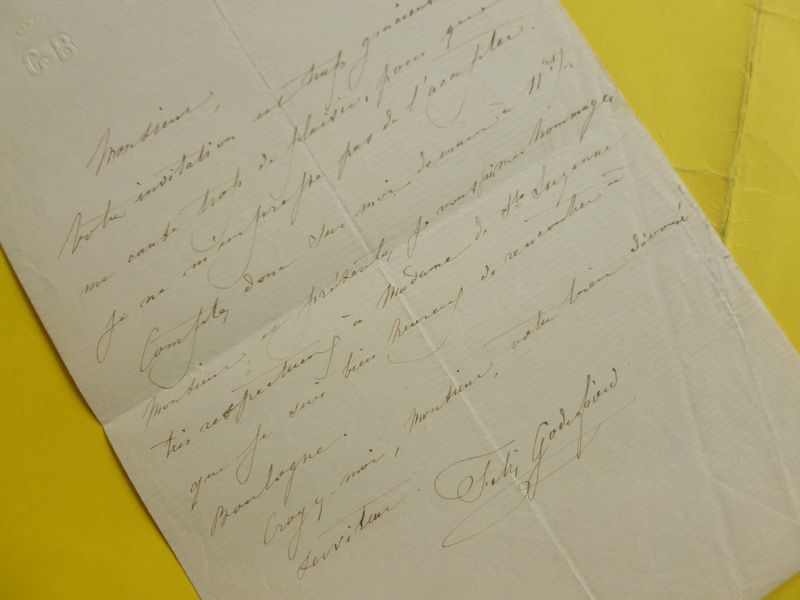 G. B
Monsieur,
Votre invitation est trop gracieuse
me cause trop de plaisir, pour que
je ne m'empresse pas de l'accepter.
Comptez donc sur moi demain à 11 hrs 1/2
Monsieur, et présentez, je vous prie mes hommages
très respectueux à Madame de Ste Suzanne
que je suis bien heureux de rencontrer à
Boulogne.
Croyez-moi, Monsieur, votre bien dévoué
serviteur.
Félix Godefroid